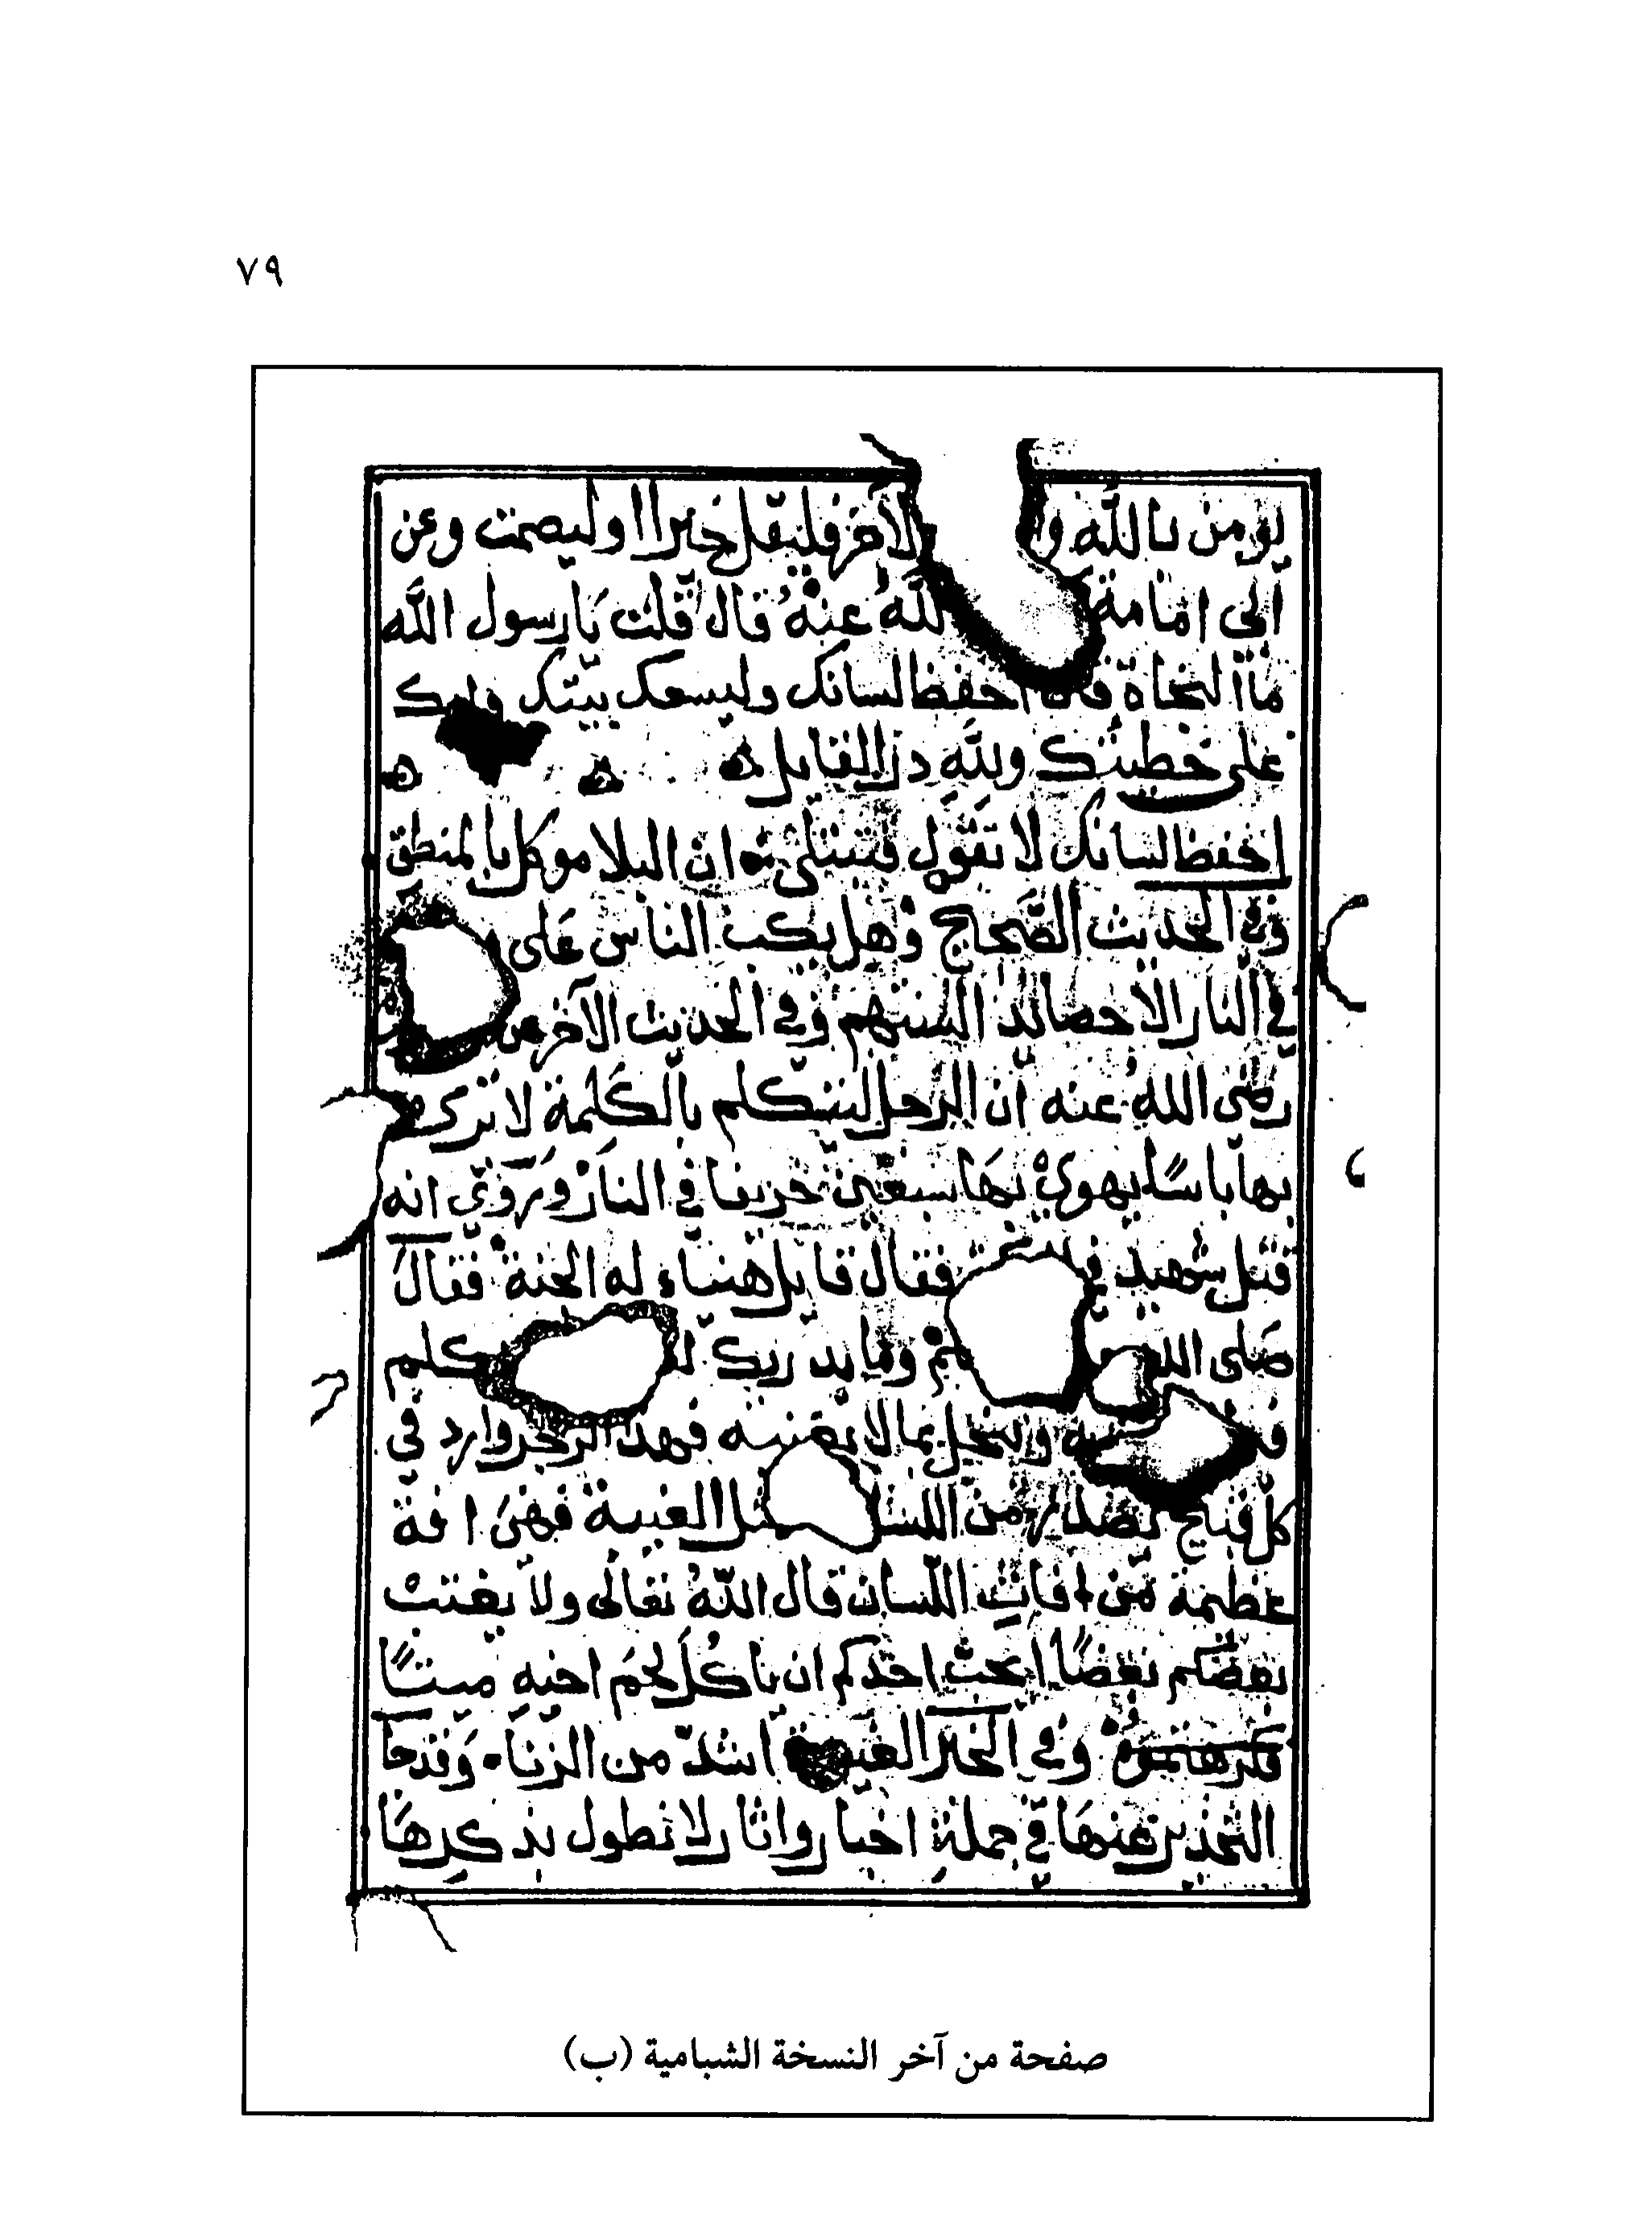 ٧٩
يومن بالله وا لآخر فليقل خيرا او ليصمت وعن
ابي امامة لله عنه قال قلت يا رسول الله
ما النجاة قال احفظ لسانك وليسعك بيتك وابك
على خطيتك ولله در القايل
احفظ لسانك لا تقول فتبتلى ان البلا موكل بالمنطق
وفي الحديث الصحاح وهل يكب الناس على
في النار الا حصائد السنتهم وفي الحديث الآخر عن
رضى الله عنه ان الرجل ليتكلم بالكلمة لا يرى
بها باسًا يهوي بها سبعين خريفا في النار وروي انه
قتل شهيد في فقال قايل هنياء له الجنة فقال
صلى الله وما يدريك كلم
ويبخل بما لا يغنيه فهذا الزجر وارد في
كل قبيح تصدر من اللسا مثل الغيبة فهي افة
عظيمة من افات اللسان قال الله تعالى ولا يغتب
بعضكم بعضًا ايحب احدكم ان ياكل لحم اخيه ميتًا
فكرهتموه وفي الخبر الغيبة اشد من الزناء وقد جا
التحذير عنها في جملة اخبار واثار لا نطول بذكرها
صفحة من آخر النسخة الشبامية (ب)